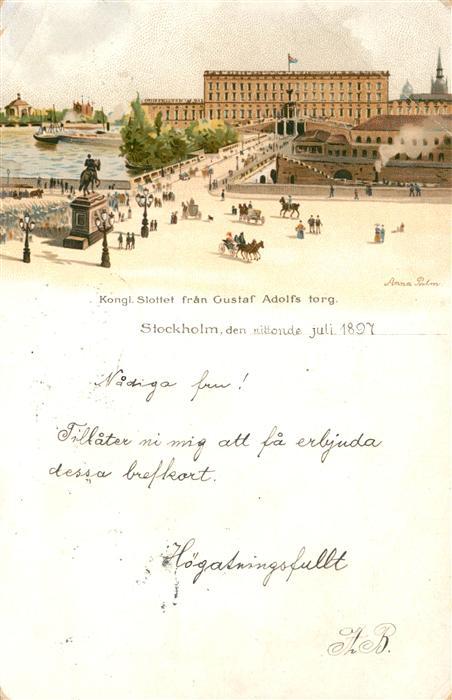 Anna Palm
Kongl. Slottet från Gustaf Adolfs torg.
Stockholm, den nittonde juli 1897
Nådiga fru!
Tillåter ni mig att få erbjuda
dessa brefkort.
Högaktningsfullt
B.